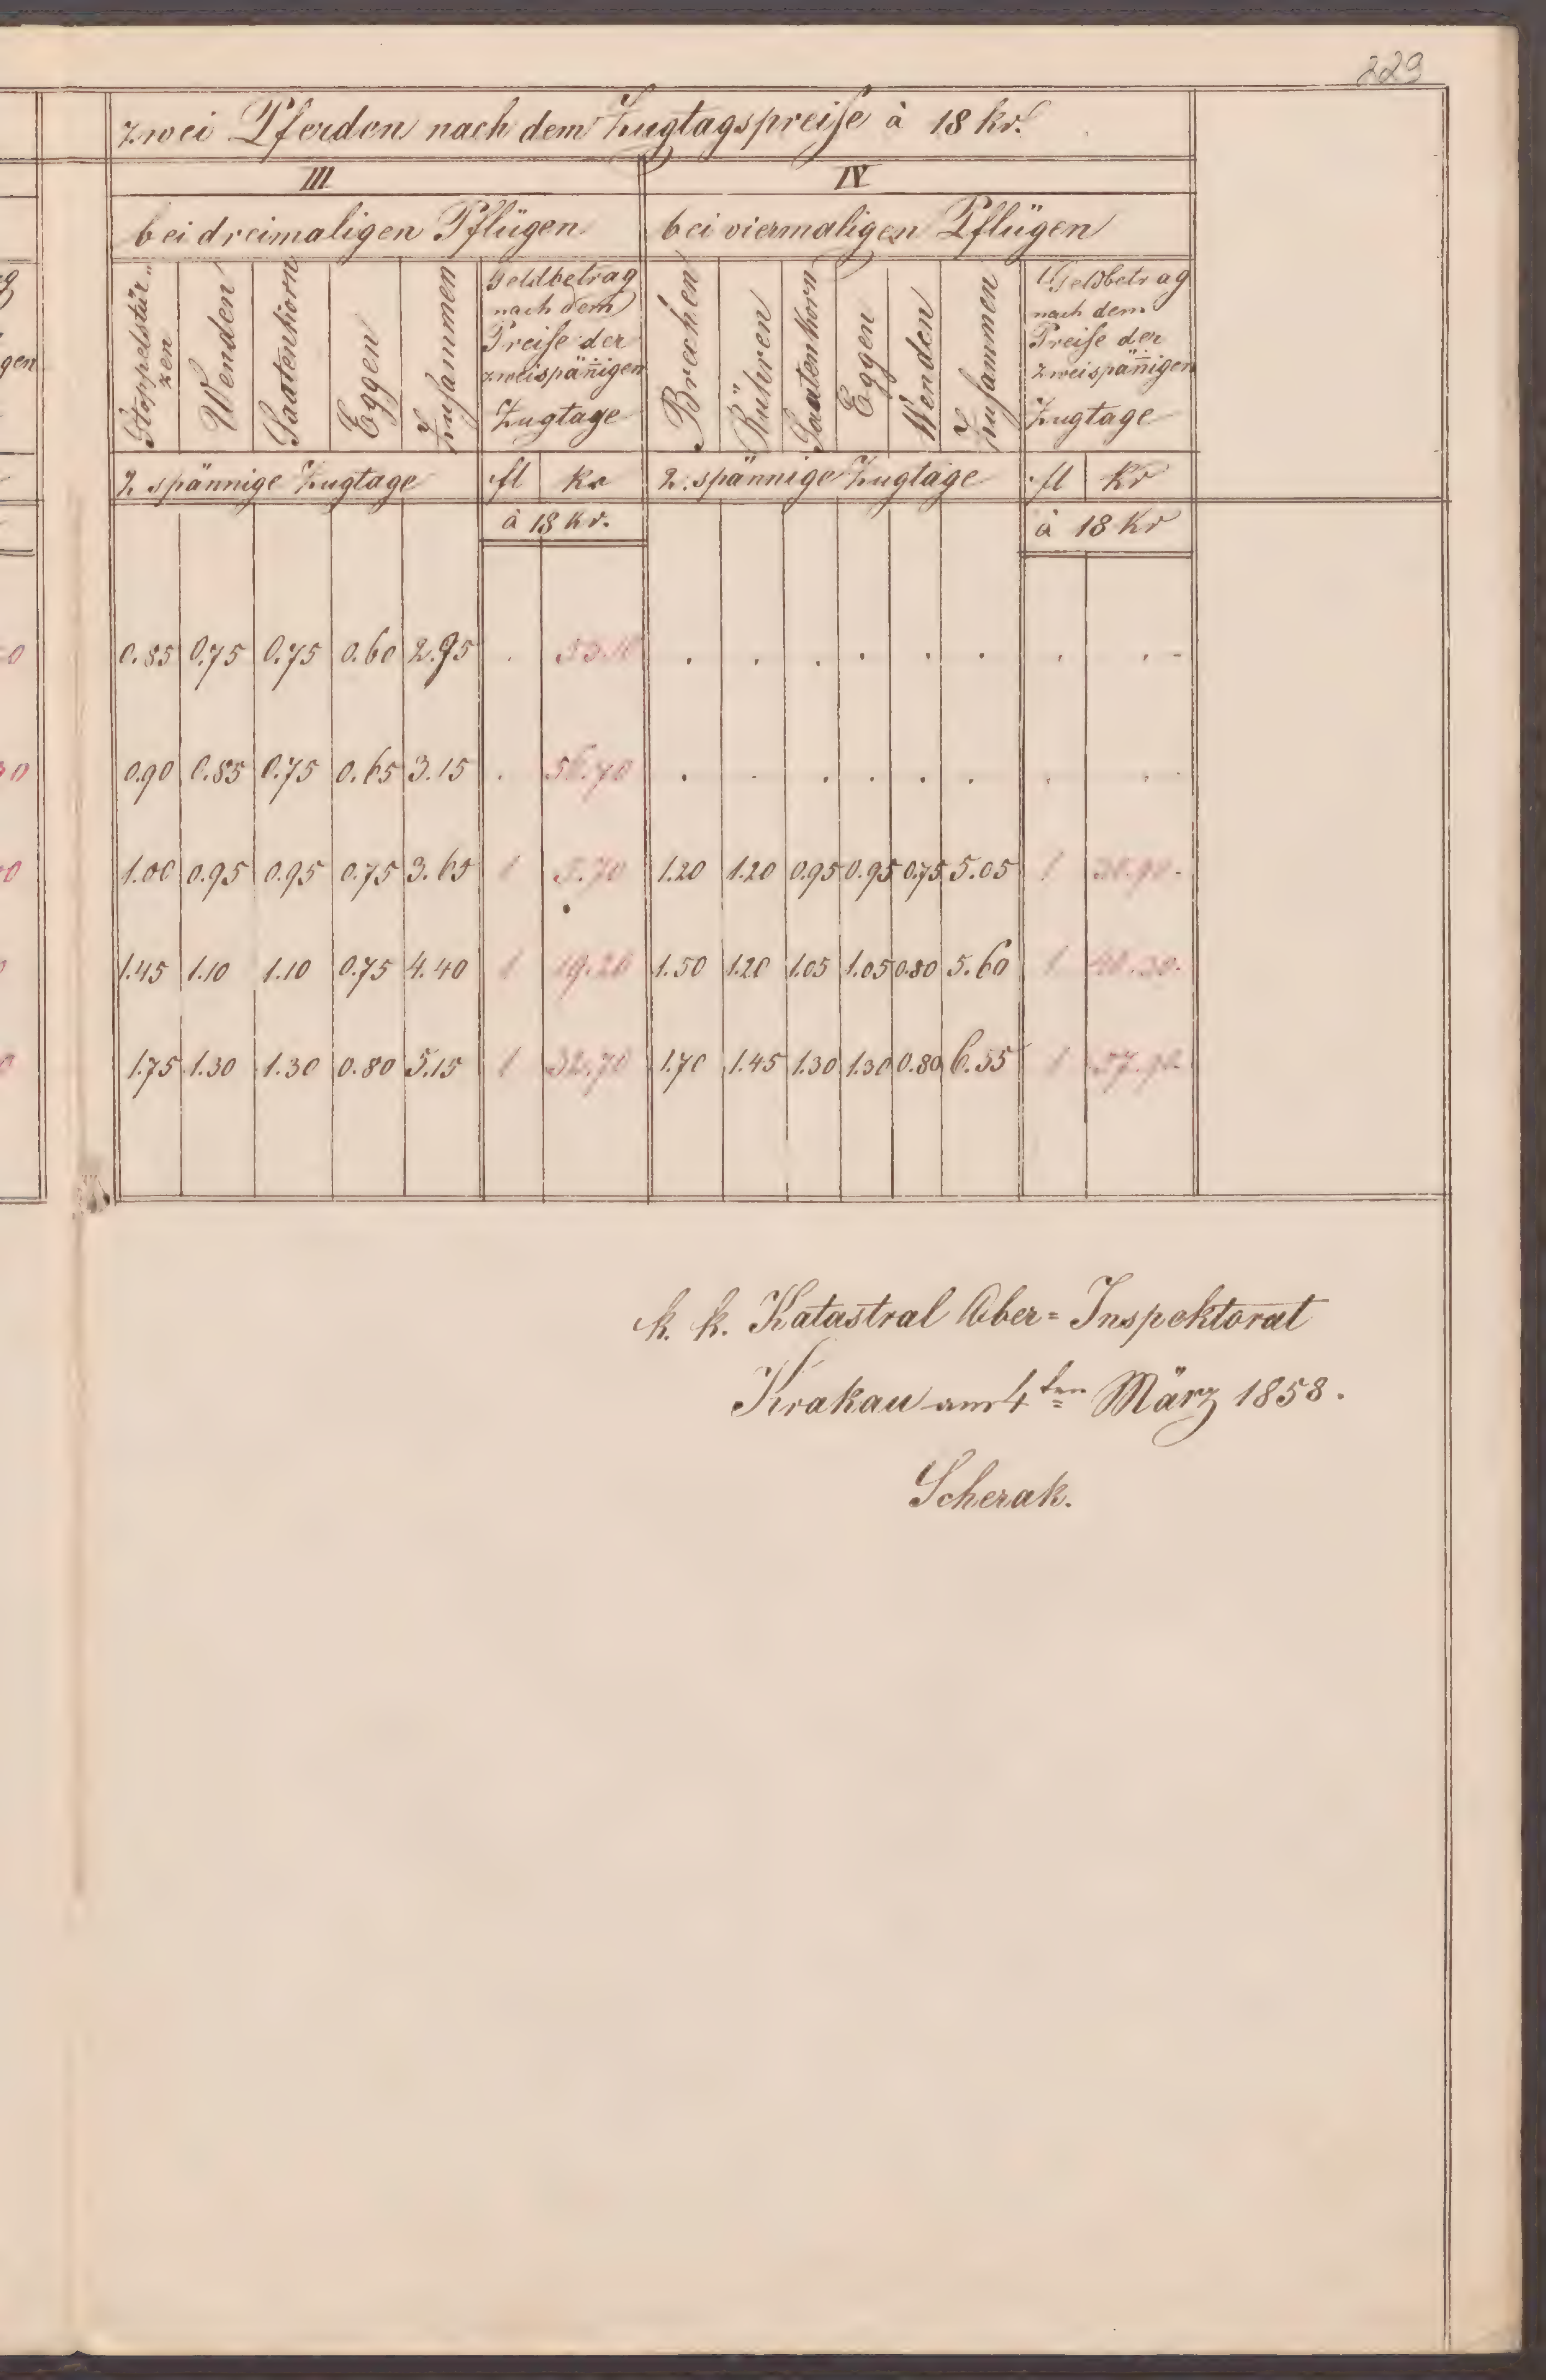 229
zwei Pferden nach dem Zugtagspreise à 18 kr.
III IV
bei dreimaligen Pflügen bei viermaligen Pflügen
Stoppelstür-
zen
Wenden
Saatenkorn
Eggen
Zusammen
Geldbetrag
nach dem
Preise der
zweispänigen
Zugtage
Brechen
Rühren
Saatenkorn
Eggen
Wenden
Zusammen
Geldbetrag
nach dem
Preise der
zweispänigen
Zugtage
gen
2 spännige Zugtage fl kr 2. spännige Zugtage fl kr
à 18 kr. à 18 kr
0.85 0.75 0.75 0.60 2.95 . 53.10 . . . . . . . . -
0.90 0.85 0.75 0.65 3.15 . 56.70 . . . . . . . . -
1.00 0.95 0.95 0.75 3.65 1 5.70 1.20 1.20 0.95 0.95 0.75 5.05 1 30.90.
1.45 1.10 1.10 0.75 4.40 1 19.20 1.50 1.20 1.05 1.05 0.80 5.60 1
1.75 1.30 1.30 0.80 5.15 1 32.70 1.70 1.45 1.30 1.30 0.80 6.55 1 57.90
k. k. Katastral Ober=Inspektorat
Krakau am 4ten März 1858.
Scherak.